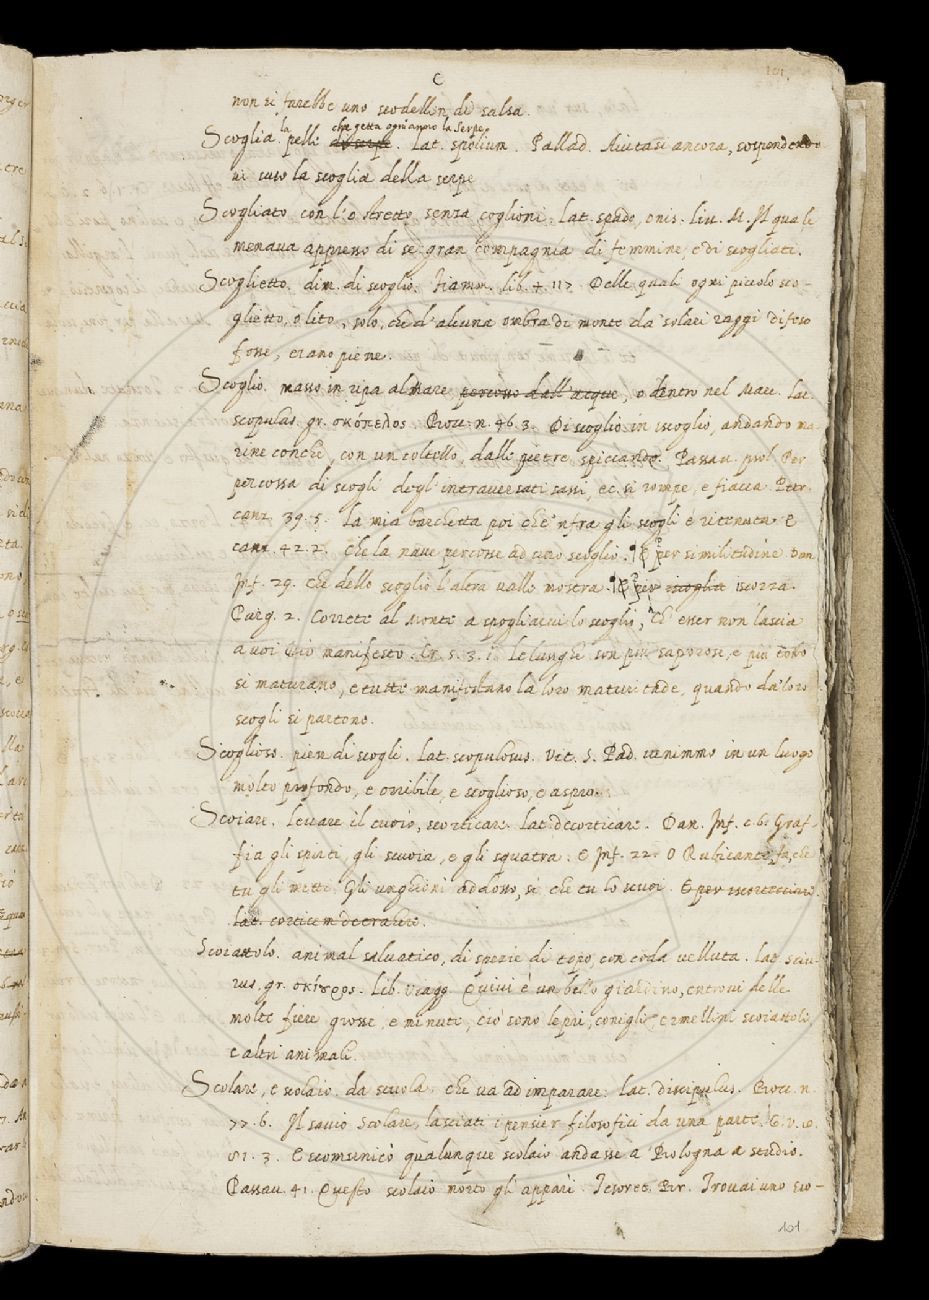 C
101.
non si farebbe uno scodellin di salsa.
Scoglia. la pelle di serpe che getta ogni anno la Serpe. Lat. spolium. Pallad. Aiutasi ancora, sospendendo
ui suso la scoglia della serpe
Scogliato con l'o stretto senza coglioni. lat. spado, onis. liu. M. Il quale
menaua appresso di se gran compagnia di femmine, e di scogliati.
Scoglietto. dim. di scoglio. Fiamm. lib. 4. 117. Delle quali ogni piccolo sco-
glietto, o lito, solo, che d'alcuna ombra di monte da solari raggi difeso
fosse, erano piene.
Scoglio. masso in ripa al Mare percosso dall'acque, o dentro nel Mare. lat.
scopulus. gr. σκόπελος Bocc. n. 46. 3. Di scoglio in iscoglio, andando ma
rine conche, con un coltello, dalle pietre spiccando. Passau. prol. Per
percossa di scogli degl'intrauersati sassi, ec. si rompe, e fiacca. Petr.
canz. 39. 5. la mia barchetta poi che 'nfra gli scogli è ritenuta E
canz. 42. 2. che la naue percosse ad uno scoglio. ¶ E per similitudine Dan
Inf. 29. che dello scoglio l'altra ualle mostra. ¶ E per iscoglia iscorza.
Purg. 2. Correte al Monte a spogliarui lo scoglio, Ch' esser non lascia
a uoi Dio manifesto. Cr. 5. 3. Le lunghe son più saporose, e più tosto
si maturano, e tutte manifestano la loro maturitade, quando da' loro
scogli si partono.
Scoglioso. pien di scogli. lat. scopulosus. Vit. S. Pad. uenimmo in un luogo
molto profondo, e orribile, e scoglioso, e aspro.
Scoiare. leuare il cuoio, scorticare. lat. decorticare. Dan. Inf. c. 6. Graf-
fia gli spirti, gli scuoia, e gli squatra. E Inf. 22. O Rubicante, fa, che
tu gli metti Gli unghioni addosso, sì che tu lo scuoi. E per iscortecciare
lat. corticem detrahere.
Scoiattolo. animal saluatico, di spezie di topo, con coda uelluta. lat. sciu-
rus. gr. σκίουρος. Lib. uiagg. Quiui è un bello giardino, entroui delle
molte fiere grosse, e minute, ciò sono lepri, conigli, ermellini scoiattoli,
e altri animali.
Scolare, e scolaio. da scuola. che ua ad imparare. lat. discipulus. Bocc. n.
77. 6. Il sauio Scolare, lasciati i pensier filosofici da una parte. G. V. 10.
81. 3. E scomunicò qualunque scolaio andasse a Bologna a studio.
Passau. 41. Questo scolaio morto gli apparì. Tesoret. Br. Trouai uno sco-
101